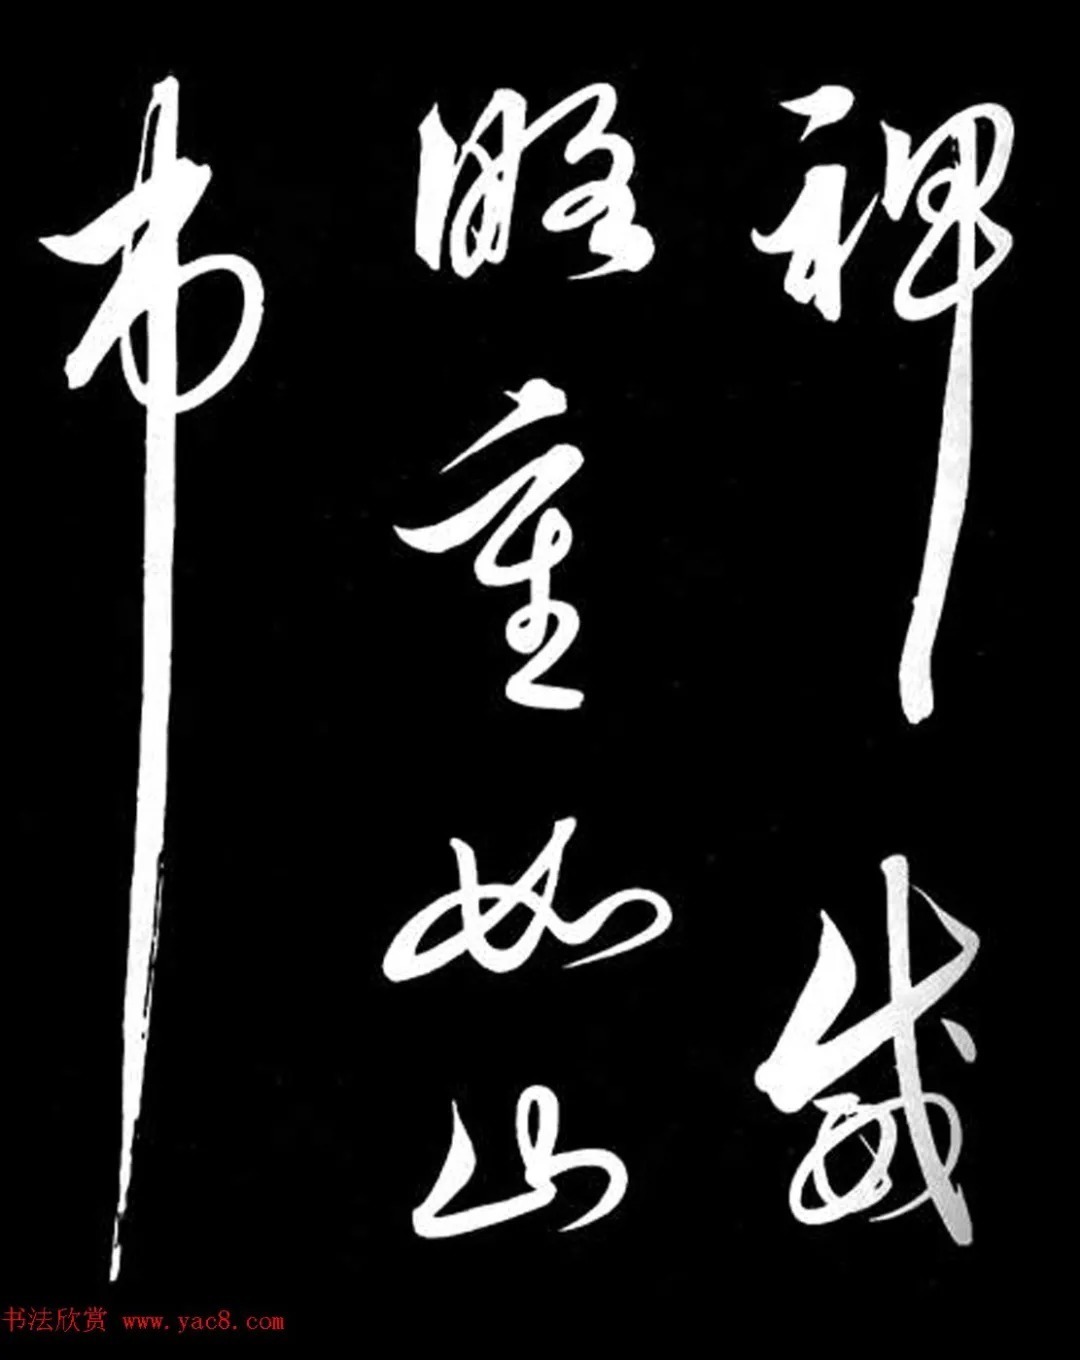 神威
略重如山
书法欣赏 www.yac8.com